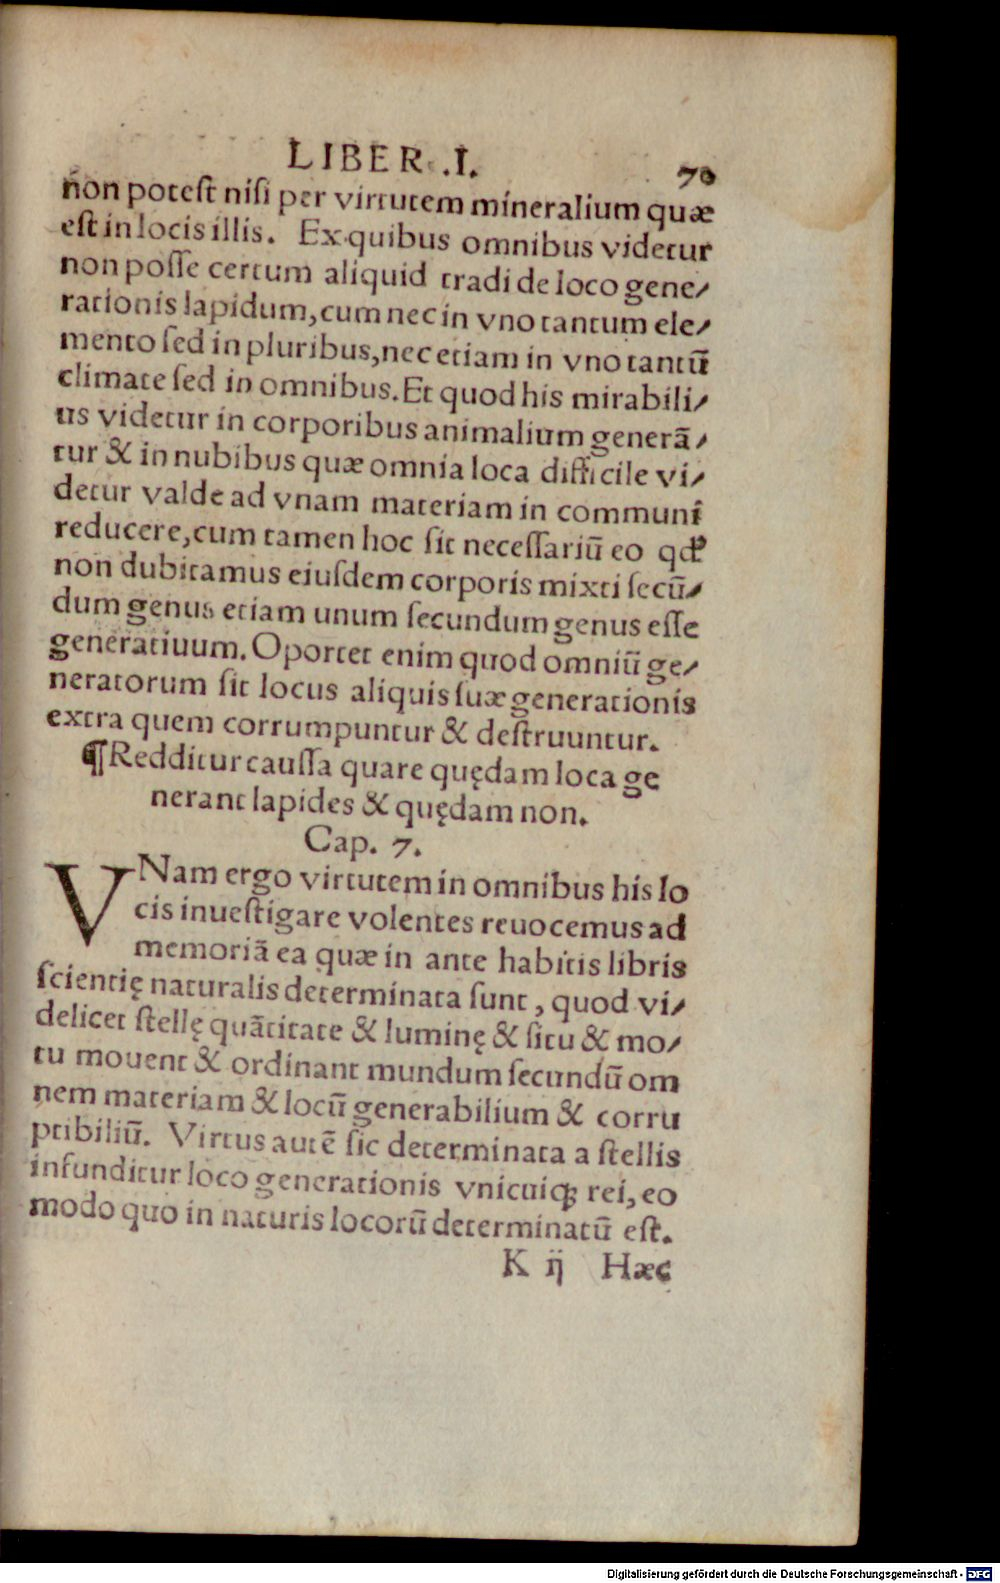 LIBER .I. 70
non poteſt niſi per virtutem mineralium quæ
eſt in locis illis. Ex quibus omnibus videtur
non poſſe certum aliquid tradi de loco gene⸗
rationis lapidum, cum nec in vno tantum ele⸗
mento ſed in pluribus, nec etiam in vno tantũ
climate ſed in omnibus. Et quod his mirabili⸗
us videtur in corporibus animalium generã⸗
tur & in nubibus quæ omnia loca difficile vi⸗
detur valde ad vnam materiam in communi
reducere, cum tamen hoc ſit neceſſariũ eo qđ
non dubitamus eiuſdem corporis mixti ſecũ⸗
dum genus etiam unum ſecundum genus eſſe
generatiuum. Oportet enim quod omniũ ge⸗
neratorum ſit locus aliquis ſuæ generationis
extra quem corrumpuntur & deſtruuntur.
¶Redditur cauſſa quare quędam loca ge
nerant lapides & quędam non.
Cap. 7.
VNam ergo virtutem in omnibus his lo
cis inueſtigare volentes reuocemus ad
memoriã ea quæ in ante habitis libris
ſcientię naturalis determinata ſunt, quod vi⸗
delicet ſtellę quãtitate & luminę & ſitu & mo⸗
tu mouent & ordinant mundum ſecundũ om
nem materiam & locũ generabilium & corru
ptibiliũ. Virtus autẽ ſic determinata a ſtellis
infunditur loco generationis vnicuiqꝫ rei, eo
modo quo in naturis locorũ determinatũ eſt.
K ij Hæc
Digitalisierung gefördert durch die Deutsche Forschungsgemeinschaft - DFG